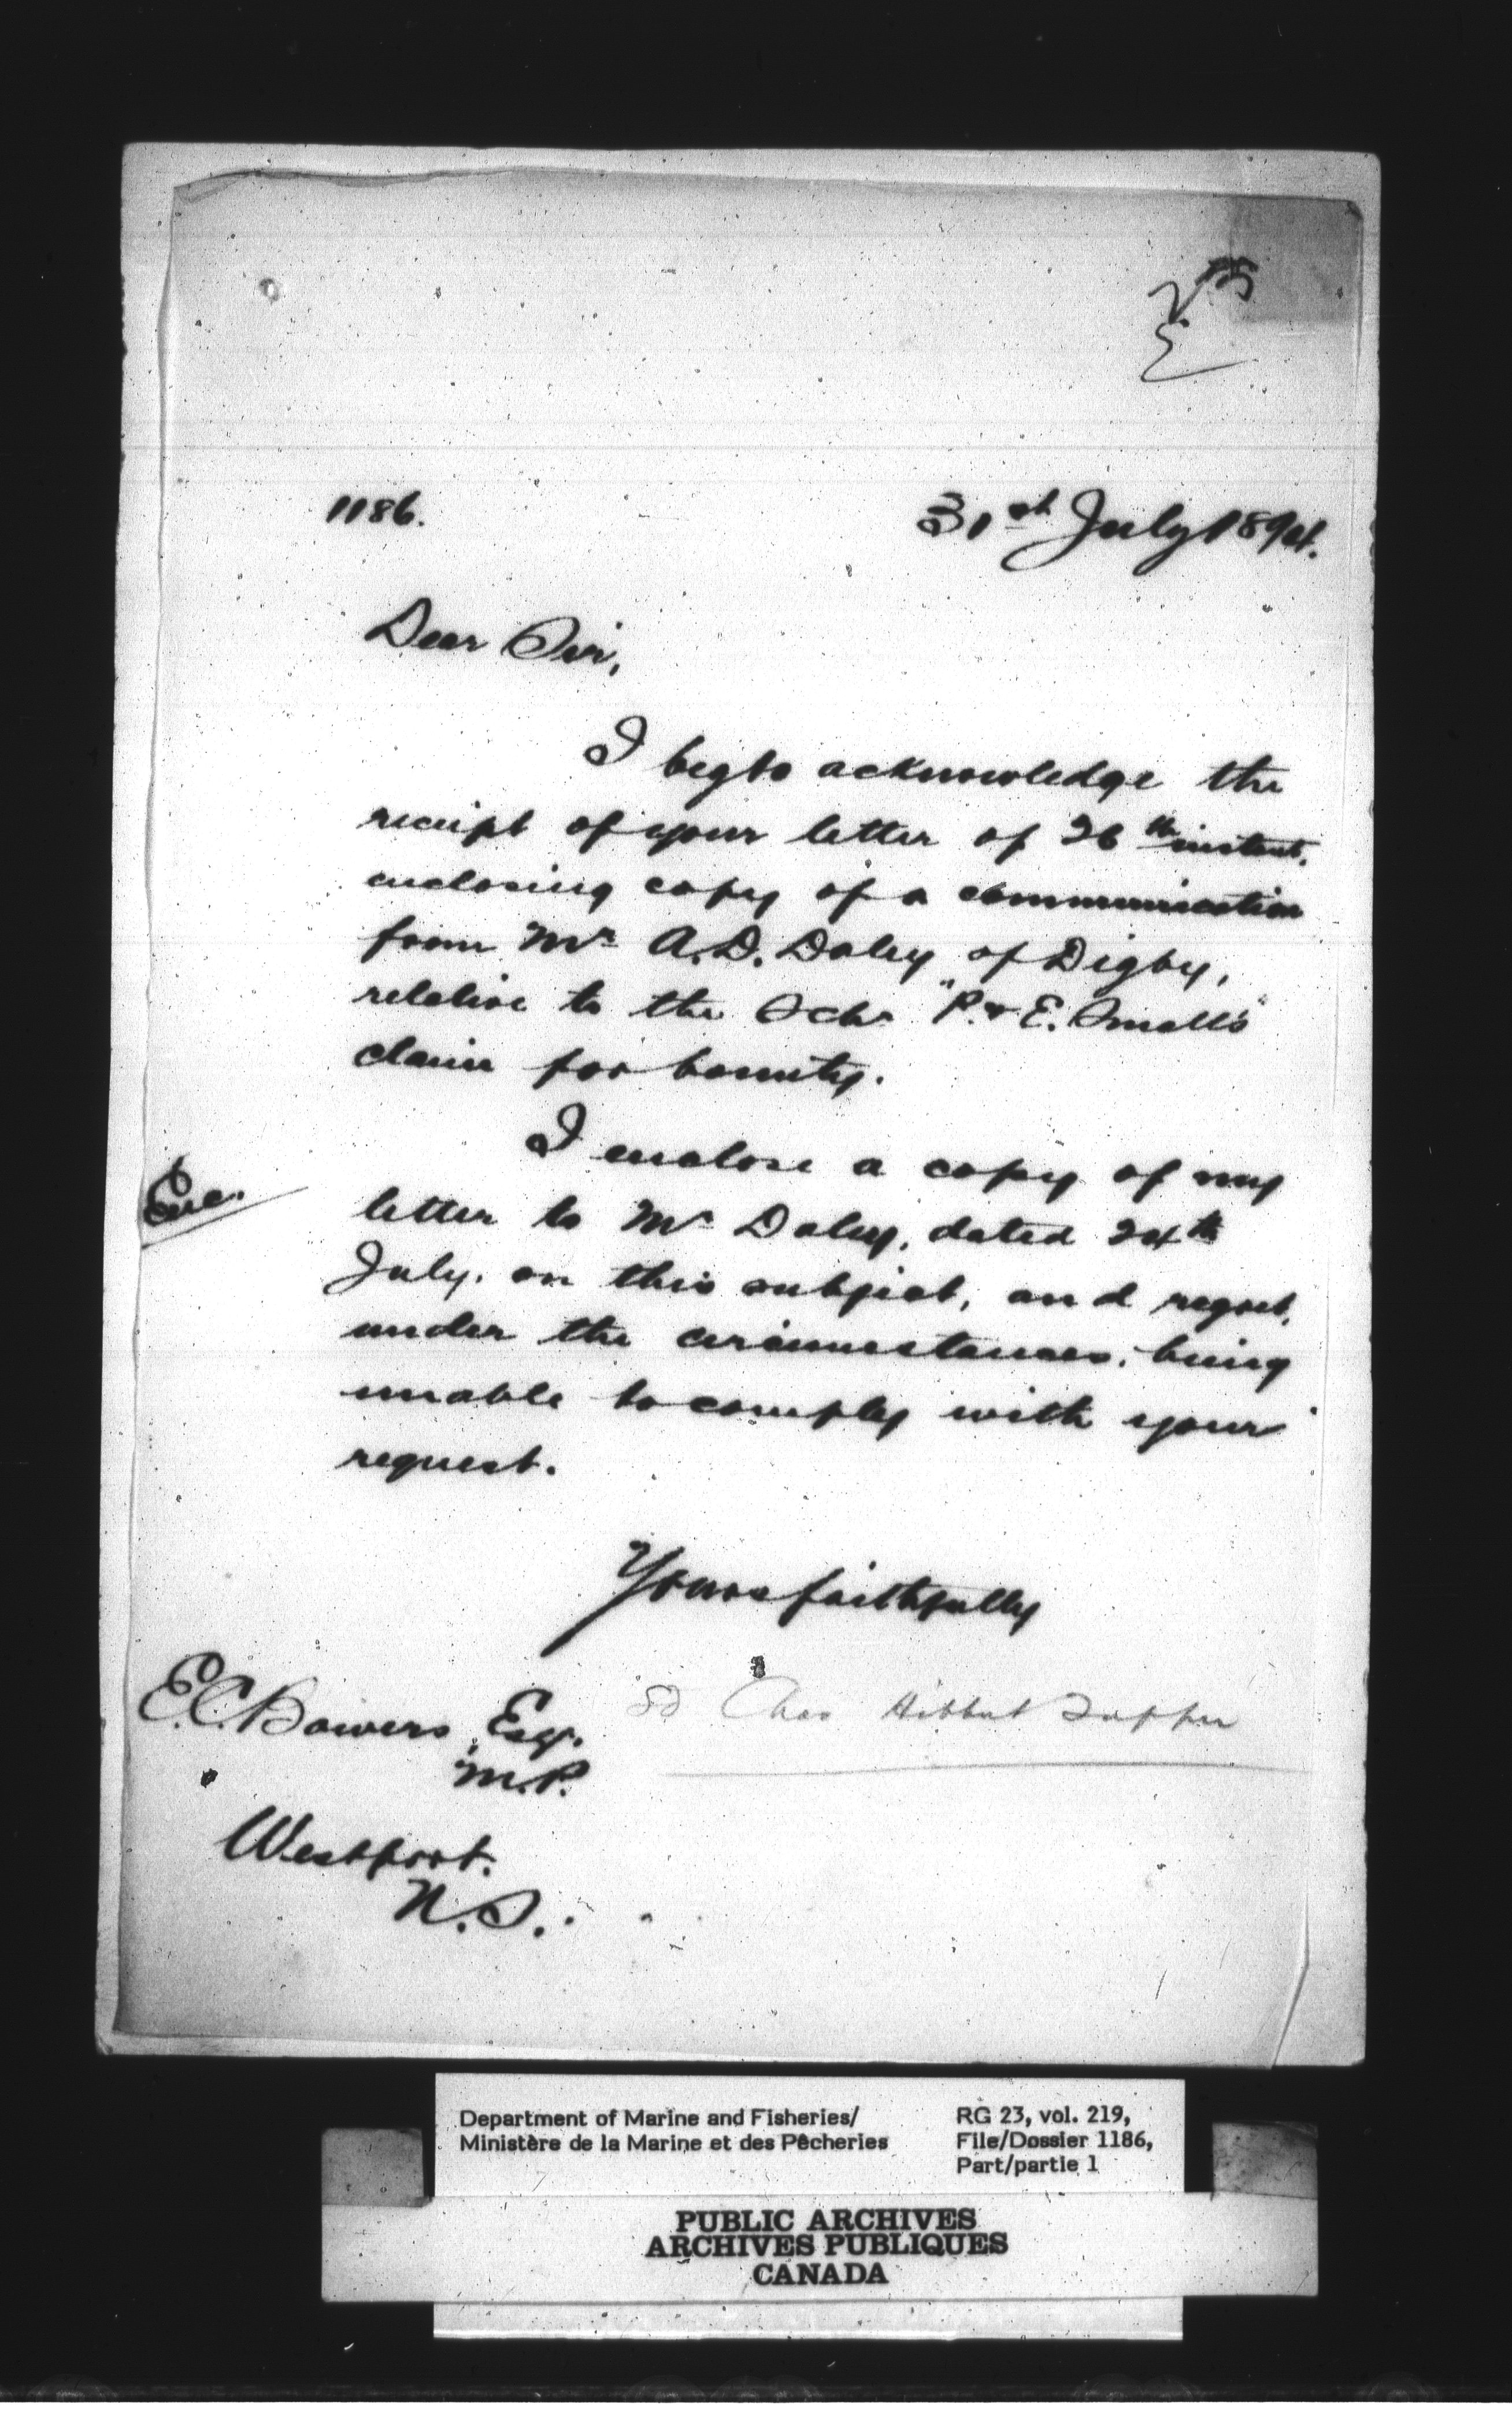 1186.
31st July 1894.
Dear Sir,
I beg to acknowledge the
receipt of your letter of 26th instant,
enclosing copy of a communication
from Mr A. D. Daley of Digby,
relative to the Schr "P. & E. Small's"
claim for bounty.
I enclose a copy of my
Enc.
letter to Mr Daley, dated 24th
July, on this subject, and regret,
under the circumstances, being
unable to comply with your
request.
Yours faithfully
Sd Chas Hibbert Tupper
E. C. Bowers, Esq.
M.P.
Westport.
N.S.
Department of Marine and Fisheries/
Ministère de la Marine et des Pêcheries
RG 23, vol. 219,
File/Dossier 1186,
Part/partie 1
PUBLIC ARCHIVES
ARCHIVES PUBLIQUES
CANADA